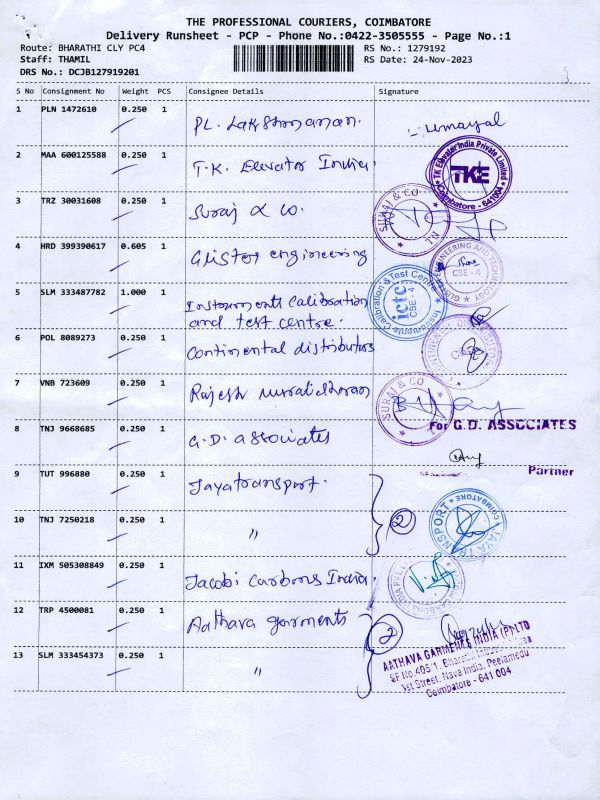 THE PROFESSIONAL COURIERS, COIMBATORE
Delivery Runsheet - PCP - Phone No.:0422-3505555 - Page No.:1
Route: BHARATHI CLY PC4 RS No.: 1279192
Staff: THAMIL RS Date: 24-Nov-2023
DRS No.: DCJB127919201
S No Consignment No Weight PCS Consignee Details Signature
1 PLN 1472610 0.250 1 PL. Lakshmanan. Umayal
2 MAA 600125588 0.250 1 T.K. Elevator India.
TK Elevator India Private Limited
TKE
Coimbatore - 641004
3 TRZ 30031608 0.250 1 Suraj & Co.
SURAJ & CO
TN
4 HRD 399390617 0.605 1 Glister engineering
ENGINEERING AND TECHNOLOGY
CBE - 4
5 SLM 333487782 1.000 1 Instruments Calibration
and test centre.
Instruments Calibration & Test Centre
ictc
CBE - 4
6 POL 8089273 0.250 1 Continental distributors
7 VNB 723609 0.250 1 Rajesh muralidharan
SURAJ & CO
For G.D. ASSOCIATES
8 TNJ 9668685 0.250 1 G.D. associates
Partner
9 TUT 996880 0.250 1 Jayatransport.
10 TNJ 7250218 0.250 1 " 2
JAYA TRANSPORT
COIMBATORE
11 IXM 505308849 0.250 1 Jacobi Carbons India.
12 TRP 4500081 0.250 1 Aathava garments 2
13 SLM 333454373 0.250 1 "
AATHAVA GARMENTS INDIA (P) LTD
SF No. 405/1, Bharathi
1st Street, Nava India, Peelamedu
Coimbatore - 641 004